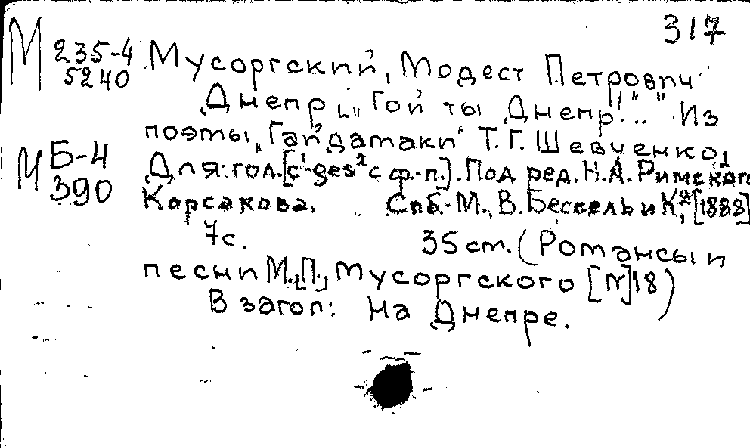 317
М 235-4 Мусоргский, Модест Петрович
5240
Днепр. „Гой ты Днепр!..." Из
поэмы „Гайдамаки" Т.Г. Шевченко,
М Б-4 Для гол. [c¹-ges² с ф.-п.]. Под ред. Н.А. Римского
390 Корсакова. Спб.-М., В. Бессель и К°, [1888]
7с. 35 см. (Романсы и
песни М.[П.] Мусоргского [№]18)
В загол: На Днепре.